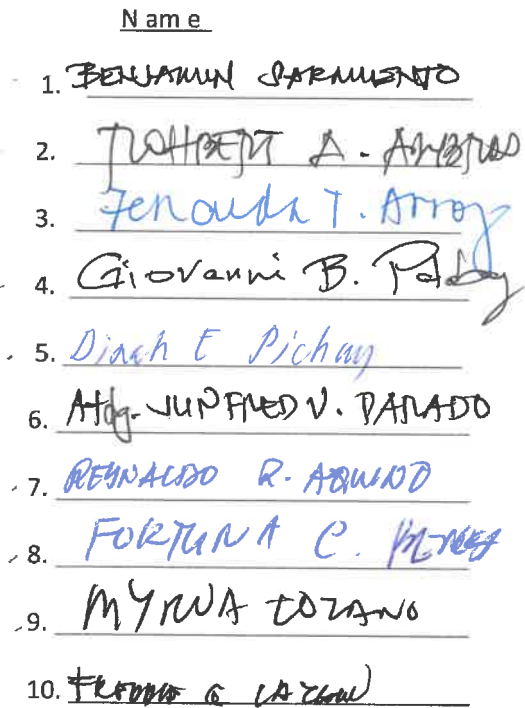 Name
1. BENJAMIN SARMIENTO
2. ROHBERT A. AMBROS
3. Fenouda T. Arroy
4. Giovanni B. Paboy
5. Dinah E Pichay
6. Atty. JUNFRED V. PARADO
7. REYNALDO R. AQUINO
8. FORTUNA C.
9. MYRNA LOZANO
10. FREDDIE G